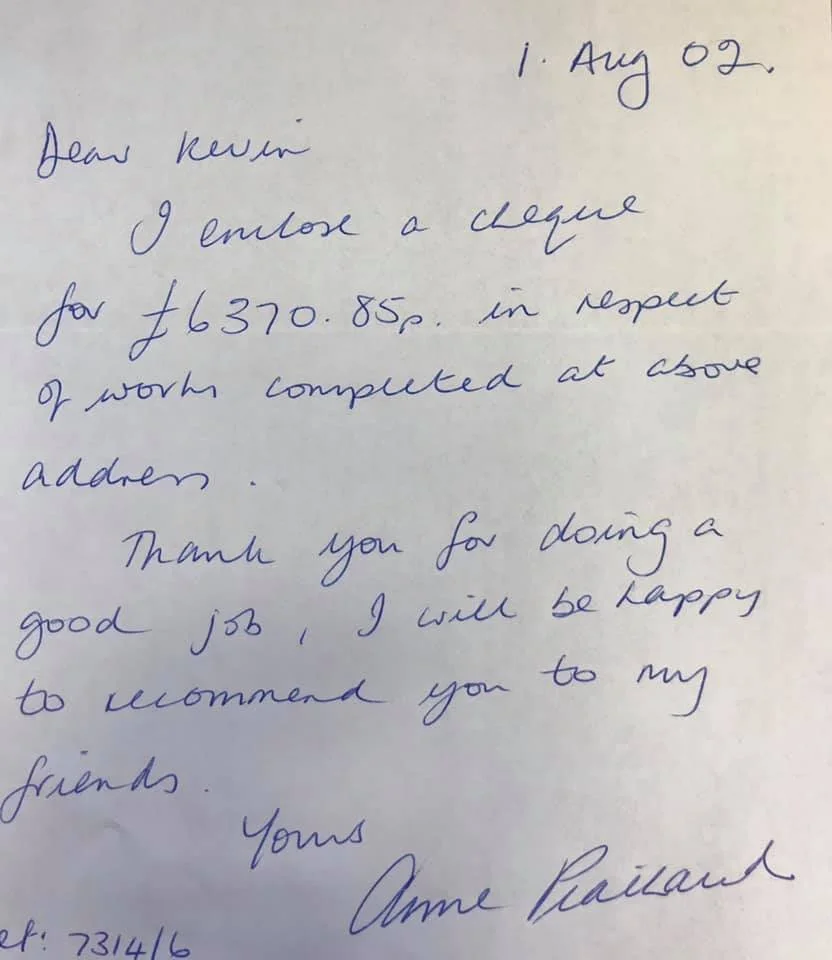 1. Aug 02.
Dear Kevin
I enclose a cheque
for £6370.85p. in respect
of works completed at above
address.
Thank you for doing a
good job, I will be happy
to recommend you to my
friends.
Yours
Anne
ef: 7314/6